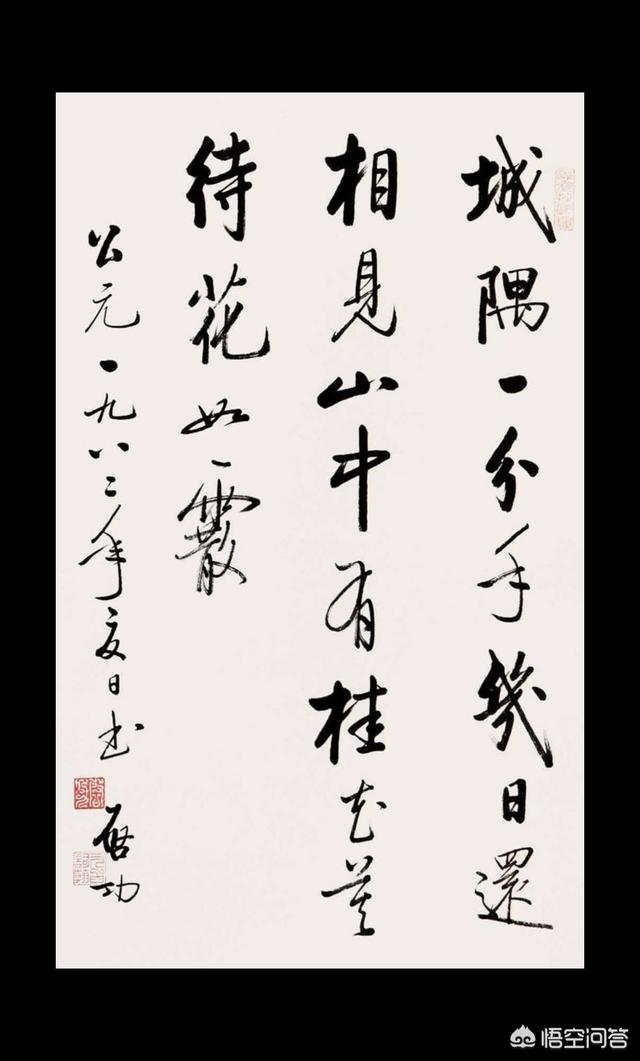 城隅一分手幾日還
相見山中有桂花莫
待花如霰
公元一九八二年夏日书 启功
悟空问答